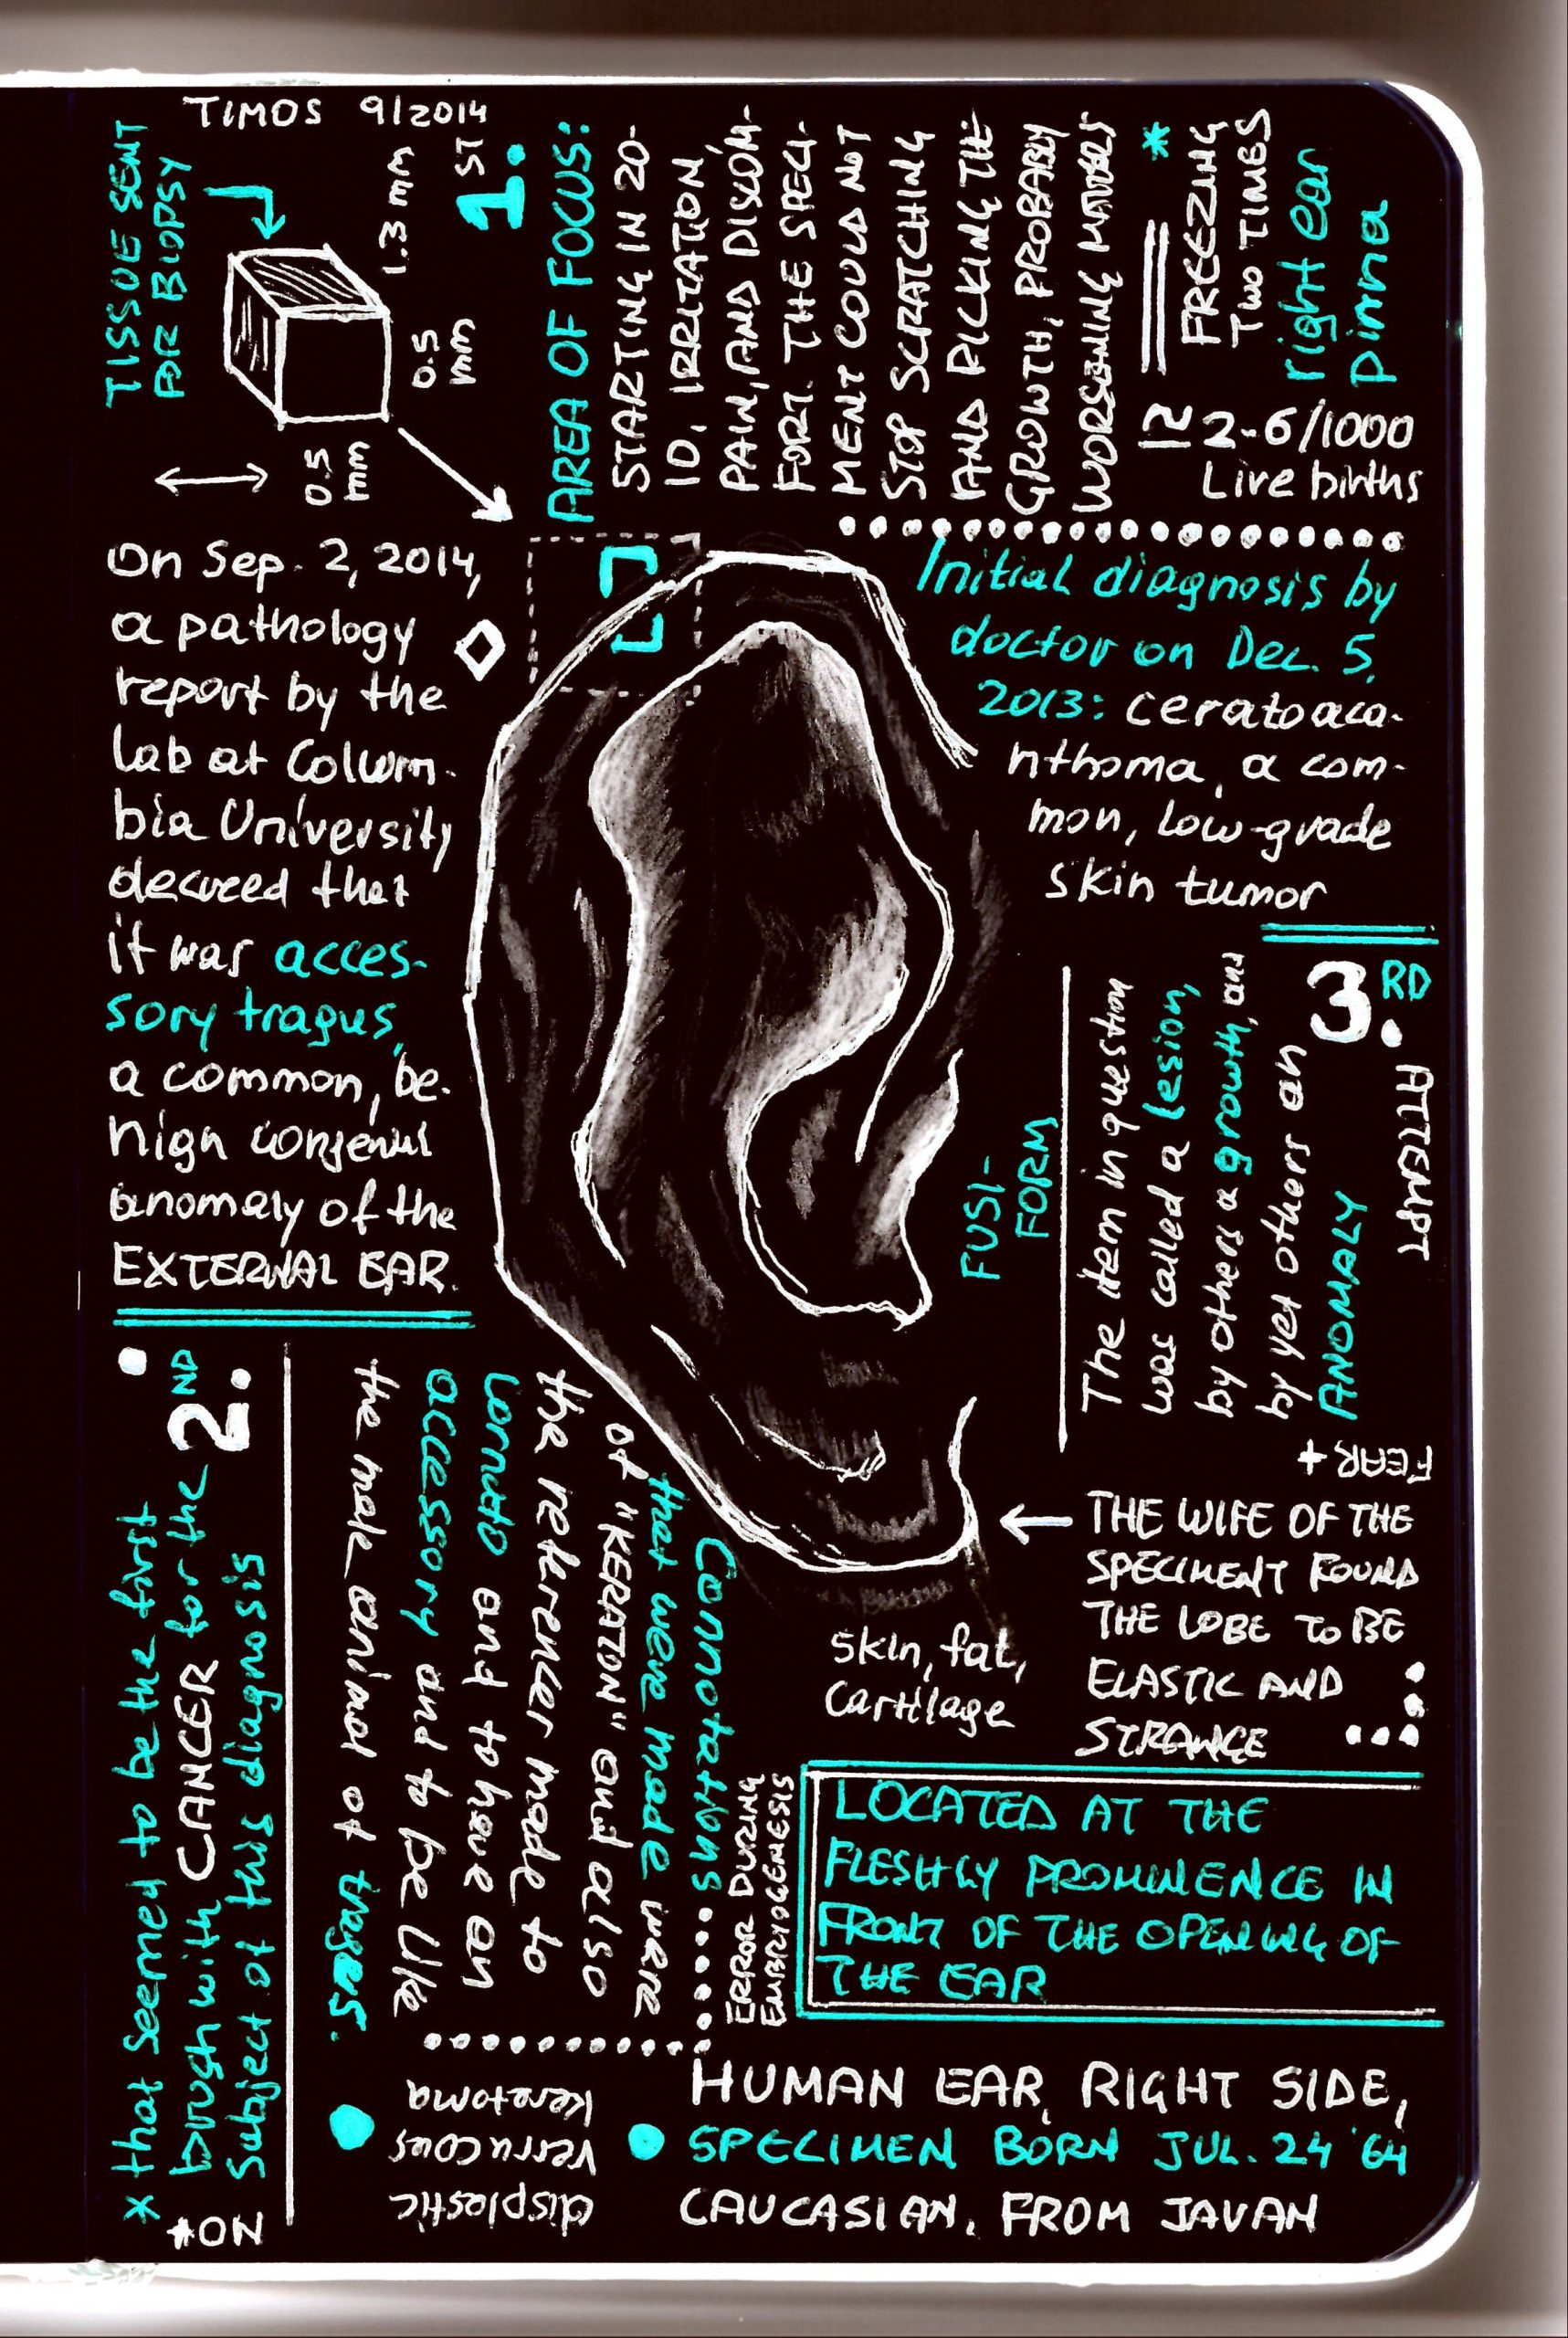 TIMOS 9/2014
TISSUE SENT
FOR BIOPSY
1.3 mm
0.5
mm
0.5
mm
1. ST
AREA OF FOCUS:
STARTING IN 20-
10, IRRITATION,
PAIN, AND DISCOM-
FORT. THE SPECI-
MENT COULD NOT
STOP SCRATCHING
AND PICKING THE
GROWTH, PROBABLY
WORSENING MATTERS
*
FREEZING
TWO TIMES
right ear
pinna
≅ 2-6/1000
Live births
On Sep. 2, 2014,
a pathology
report by the
lab at Colum-
bia University
decreed that
it was acces-
sory tragus,
a common, be-
nign congenial
anomaly of the
EXTERNAL EAR.
Initial diagnosis by
doctor on Dec. 5,
2013: ceratoaca-
nthoma, a com-
mon, low-grade
skin tumor
3. RD
ATTEMPT
FUSI-
FORM
The item in question
was called a lesion,
by others a growth, and
by yet others an
ANOMALY
FEAR +
THE WIFE OF THE
SPECIMENT FOUND
THE LOBE TO BE
ELASTIC AND
STRANGE
skin, fat,
cartilage
2. ND
* that seemed to be the first
brush with CANCER for the
subject of this diagnosis
*ON
Connotations
that were made were
of "KERATON" and also
the reference made to
cornuto and to have an
accessory and to be like
the male animal of trages.
ERROR DURING
EMBRYOGENESIS
LOCATED AT THE
FLESHLY PROMINENCE IN
FRONT OF THE OPENING OF
THE EAR
displastic
verrucous
keratoma
HUMAN EAR, RIGHT SIDE,
SPECIMEN BORN JUL. 24 '64
CAUCASIAN, FROM JAVAN